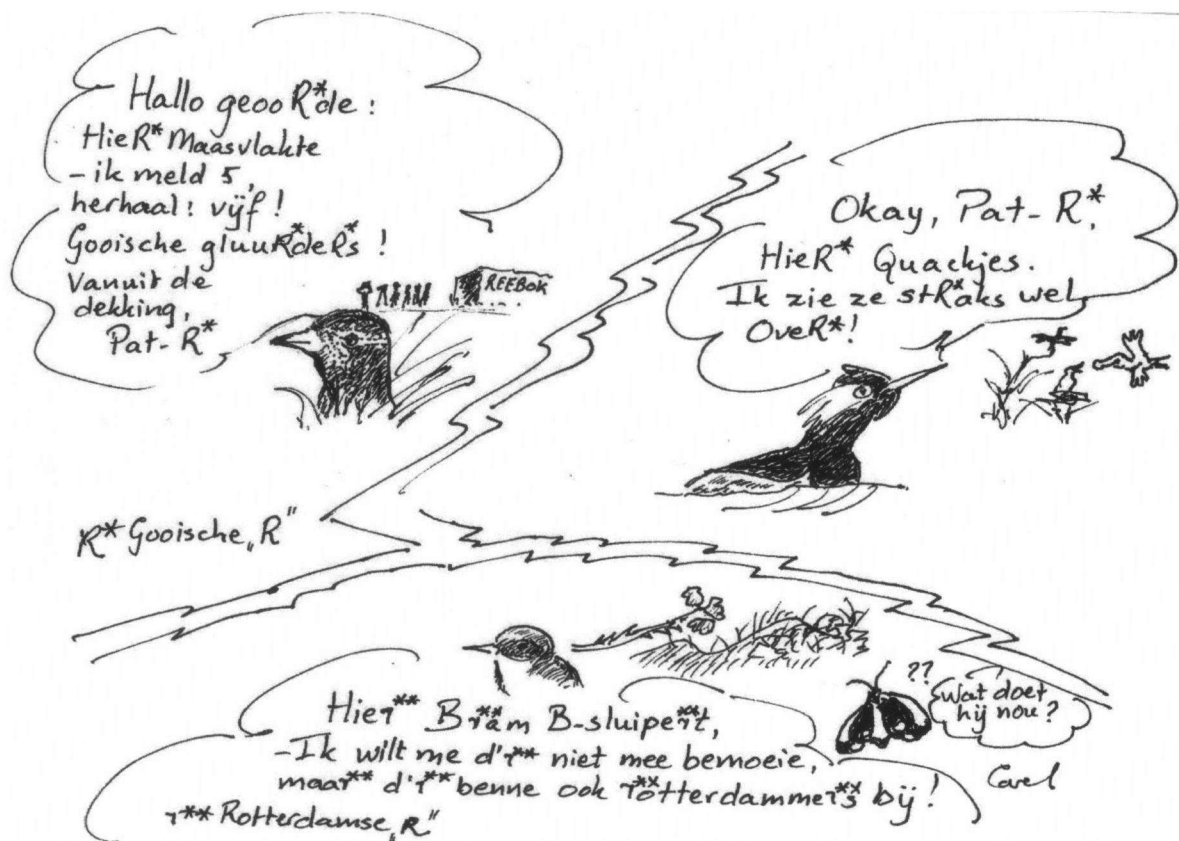 Hallo geooR*de :
HieR* Maasvlakte
- ik meld 5,
herhaal : vijf !
Gooische gluuR*deR*s !
Vanuit de
dekking,
Pat-R*
REEBOK
Okay, Pat-R*,
HieR* Quackjes.
Ik zie ze stR*aks wel
OveR*!
R* Gooische „R"
Hier** Br**am B-sluiper**t,
-Ik wilt me d'r** niet mee bemoeie,
maar** d'r** benne ook r**otterdammer**s bij !
r** Rotterdamse „R"
??
Wat doet
hij nou ?
Carel